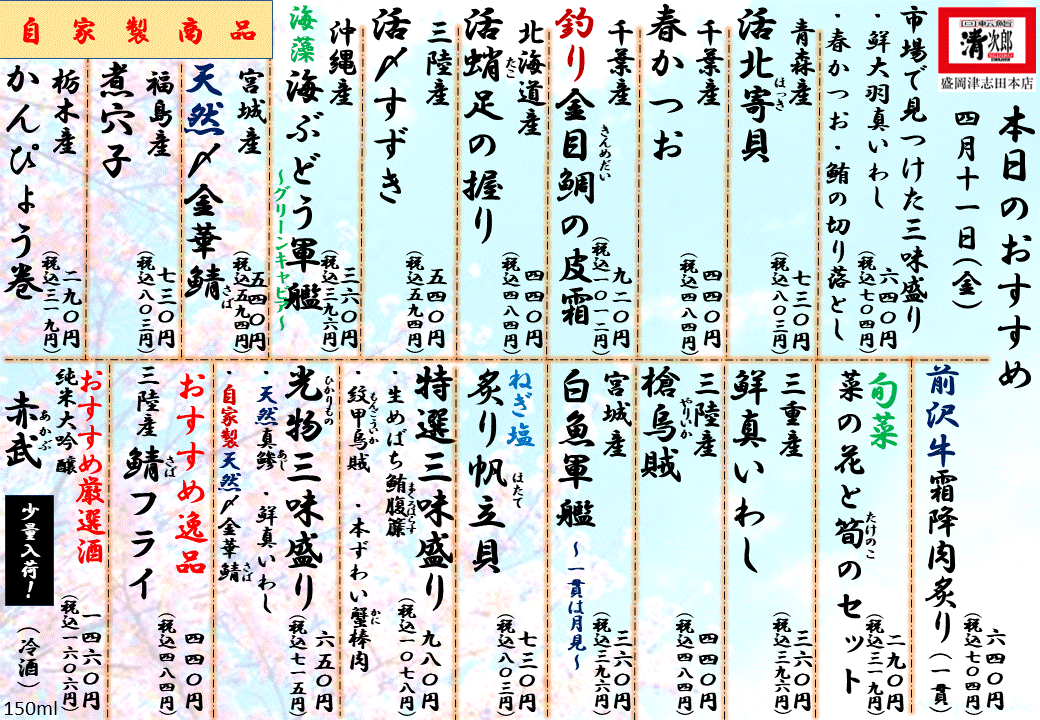 回転鮨
清次郎
盛岡津志田本店
本日のおすすめ
四月十一日(金)
市場で見つけた三味盛り
・鮮大羽真いわし
・春かつお・鮪の切り落とし
六四〇円
(税込七〇四円)
青森産
活北寄貝
ほっき
七三〇円
(税込八〇三円)
千葉産
春かつお
四四〇円
(税込四八四円)
千葉産
釣り金目鯛の皮霜
きんめだい
九二〇円
(税込一〇一二円)
北海道産
活蛸足の握り
たこ
四四〇円
(税込四八四円)
三陸産
活〆すずき
五四〇円
(税込五九四円)
沖縄産
海藻海ぶどう軍艦
~グリーンキャビア~
三六〇円
(税込三九六円)
自家製商品
宮城産
天然〆金華鯖
さば
五四〇円
(税込五九四円)
福島産
煮穴子
七三〇円
(税込八〇三円)
栃木産
かんぴょう巻
二九〇円
(税込三一九円)
前沢牛霜降肉炙り(一貫)
六四〇円
(税込七〇四円)
旬菜
菜の花と筍のセット
たけのこ
二九〇円
(税込三一九円)
三重産
鮮真いわし
三六〇円
(税込三九六円)
三陸産
槍烏賊
やりいか
四四〇円
(税込四八四円)
宮城産
白魚軍艦
~一貫は月見~
三六〇円
(税込三九六円)
ねぎ塩
炙り帆立貝
ほたて
七三〇円
(税込八〇三円)
特選三味盛り
・生めばち鮪腹簾
まぐろはらす
・紋甲烏賊
もんごういか
・本ずわい蟹棒肉
かに
九八〇円
(税込一〇七八円)
光物三味盛り
ひかりもの
・天然真鯵
あじ
・鮮真いわし
・自家製天然〆金華鯖
さば
六五〇円
(税込七一五円)
おすすめ逸品
三陸産
鯖フライ
さば
四四〇円
(税込四八四円)
おすすめ厳選酒
純米大吟醸
赤武
あかぶ
少量入荷!
(冷酒)
一四六〇円
(税込一六〇六円)
150ml